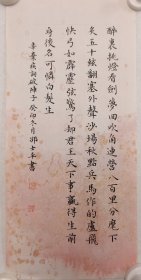 醉裏挑燈看劍夢回吹角連營八百里分麾下
炙五十弦翻塞外聲沙場秋點兵馬作的盧飛
快弓如霹靂弦驚了却君王天下事贏得生前
身後名可憐白髮生
辛棄疾詞破陣子癸卯冬月書